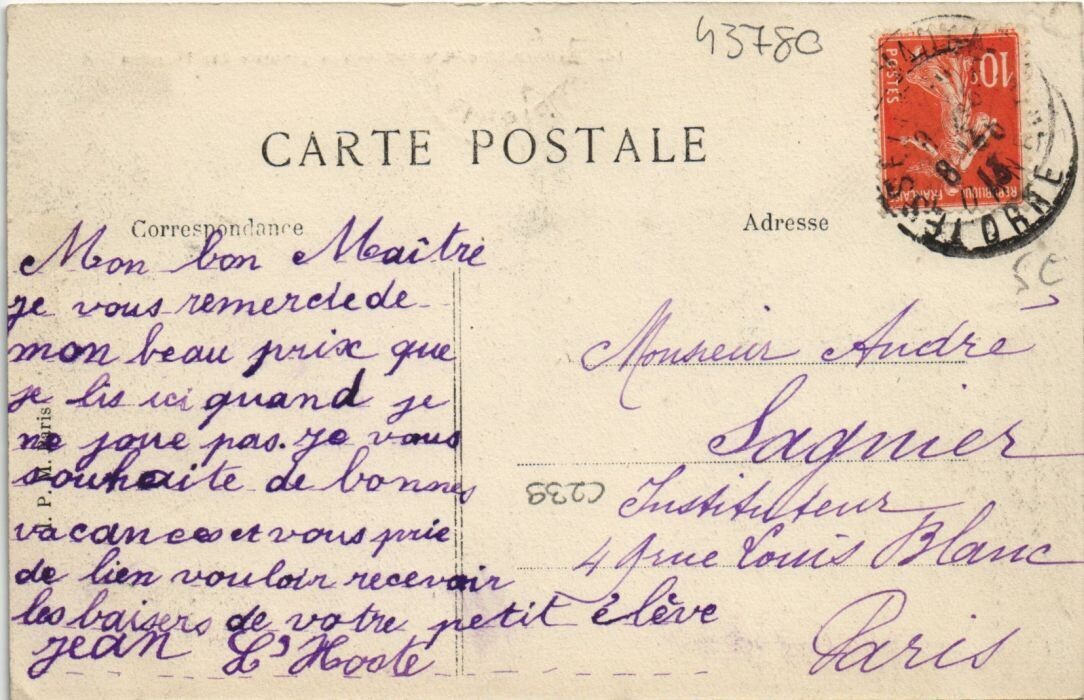 43780
10c
POSTES
REPUBLIQUE
FRANÇAISE
ORNE
CARTE POSTALE
Correspondance
Adresse
Mon bon Maître
je vous remercie de
mon beau prix que
je lis ici quand je
ne joue pas. Je vous
souhaite de bonnes
vacances et vous prie
de bien vouloir recevoir
les baisers de votre petit élève
Jean L'Hoste
Monsieur André
Sagnier
Instituteur
49 rue Louis Blanc
Paris
C239
Paris